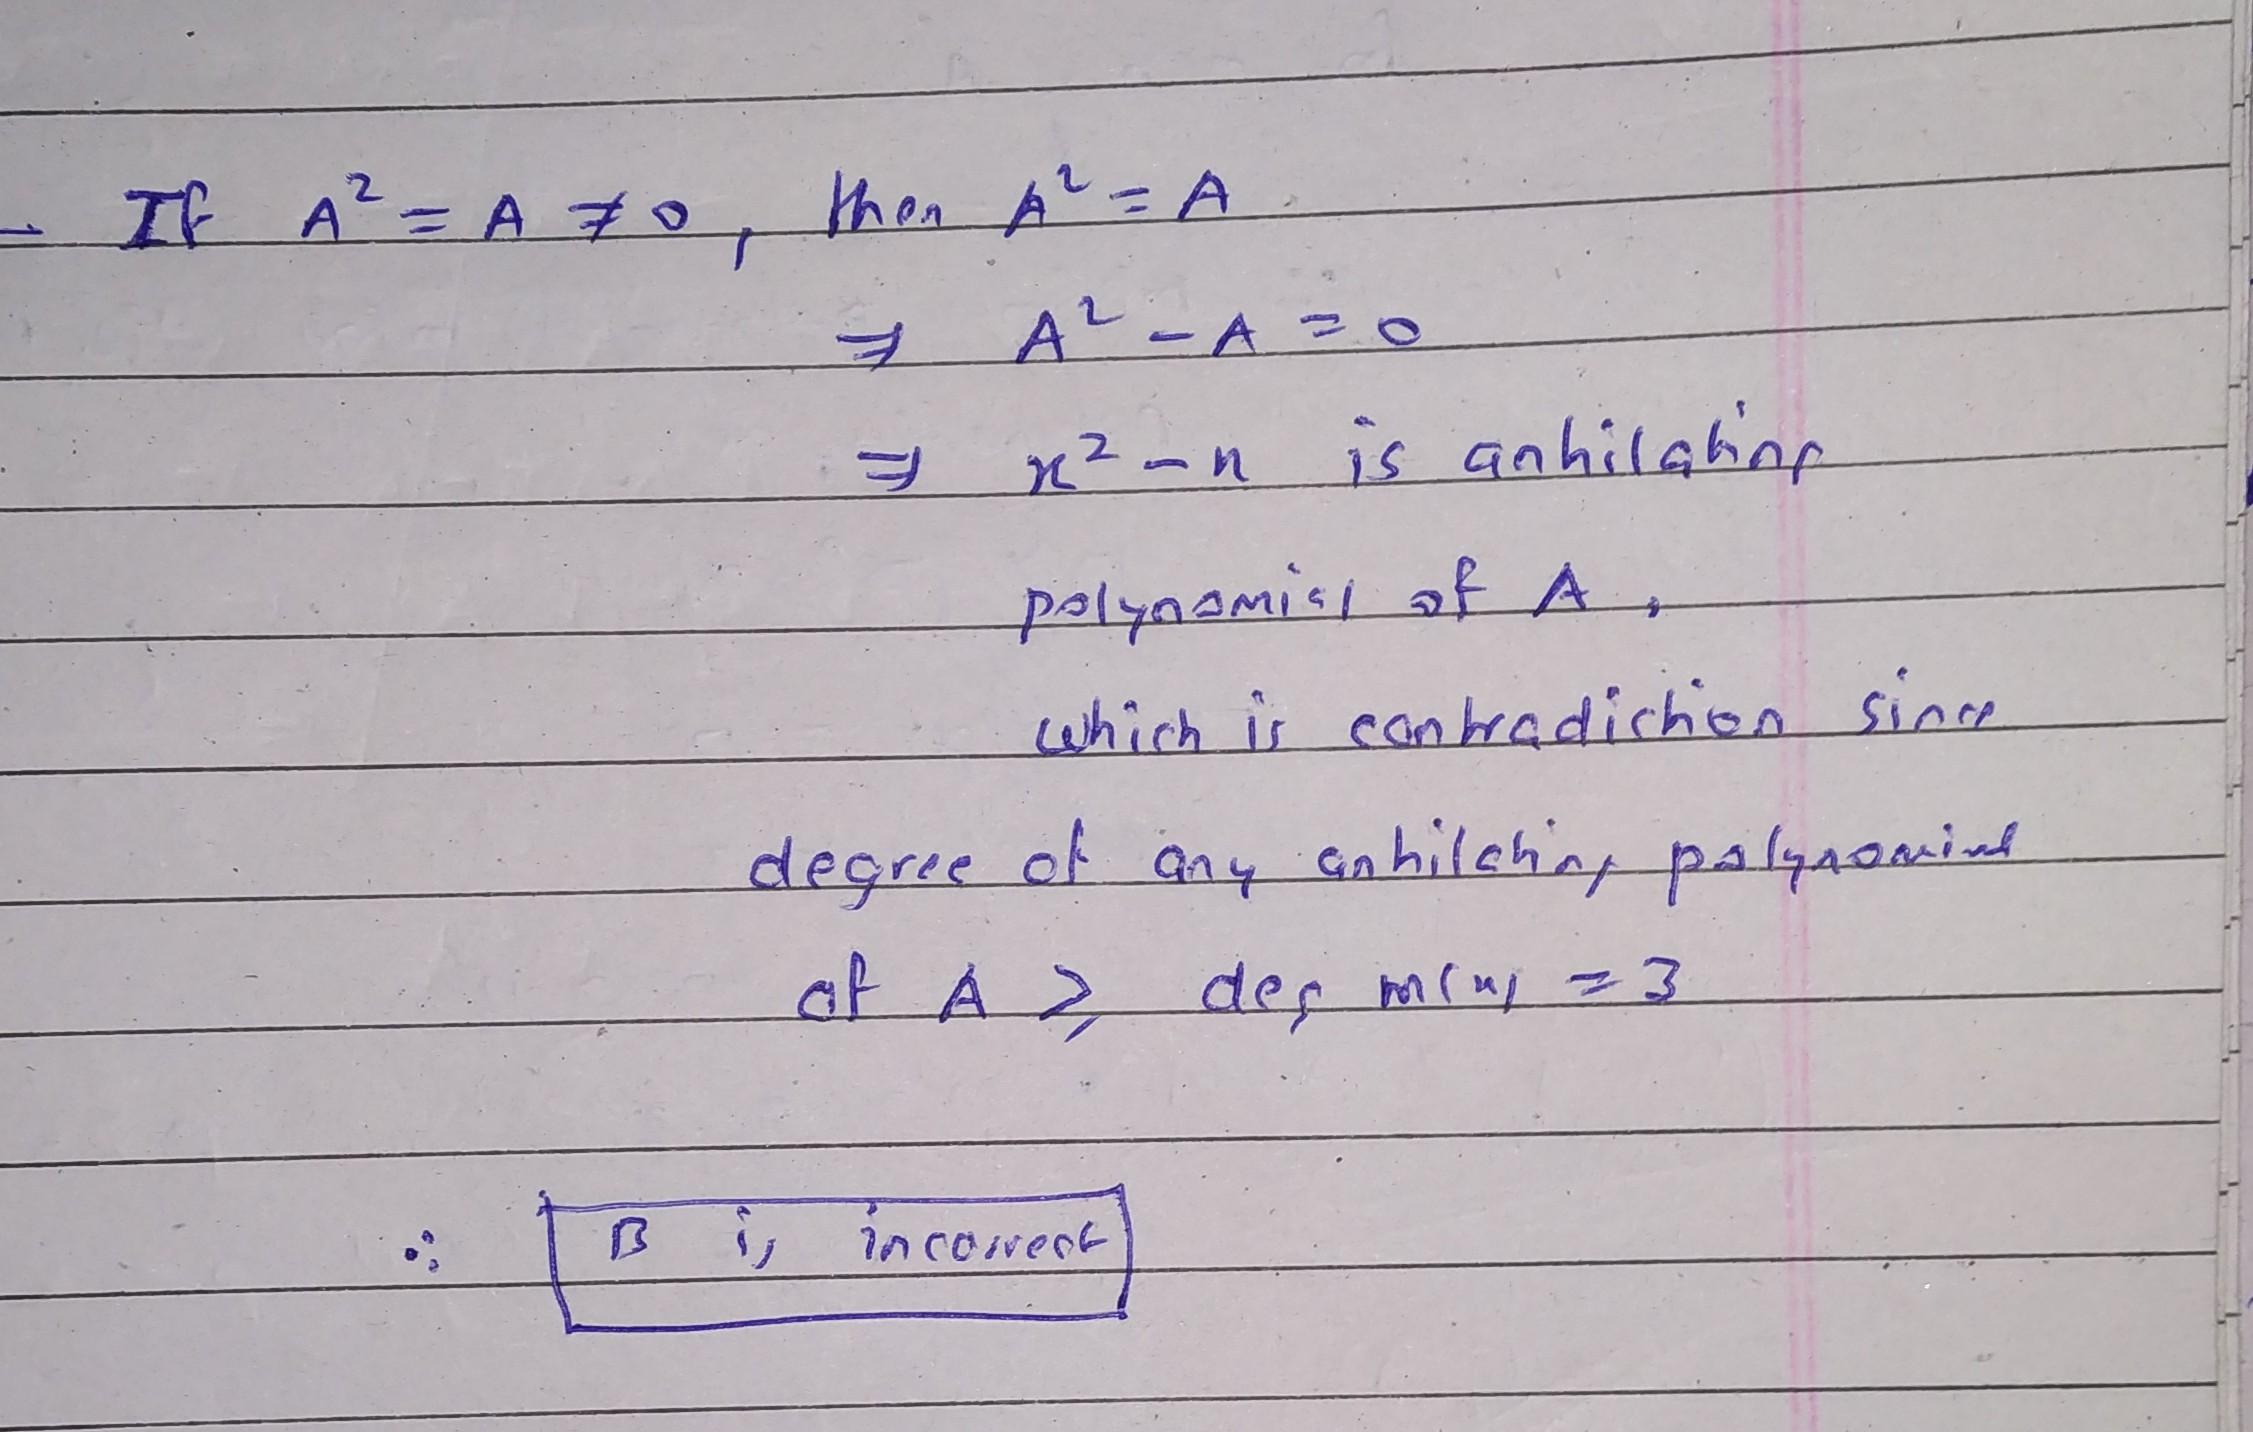 - If A² = A ≠ 0, then A² = A
⇒ A² - A = 0
⇒ x² - x is anhilating
polynomial of A,
which is contradiction since
degree of any anhilating polynomial
of A ≥ deg m(x) = 3
∴ B is incorrect